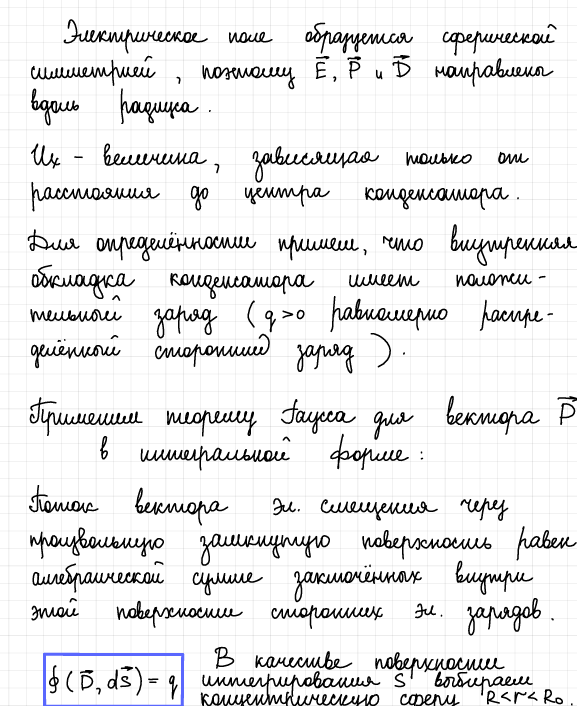 Электрическое поле образуется сферической
симметрией, поэтому E⃗, P⃗ и D⃗ направлены
вдоль радиуса.
Их - величина, зависящая только от
расстояния до центра конденсатора.
Для определённости примем, что внутренняя
обкладка конденсатора имеет положи-
тельный заряд (q>0 равномерно распре-
делённый сторонний заряд).
Применим теорему Гаусса для вектора D⃗
в интегральной форме:
Поток вектора эл. смещения через
произвольную замкнутую поверхность равен
алгебраической сумме заключённых внутри
этой поверхности сторонних эл. зарядов.
∮(D⃗, dS⃗) = q В качестве поверхности
интегрирования S выбираем
концентрическую сферу R<r<R₀.